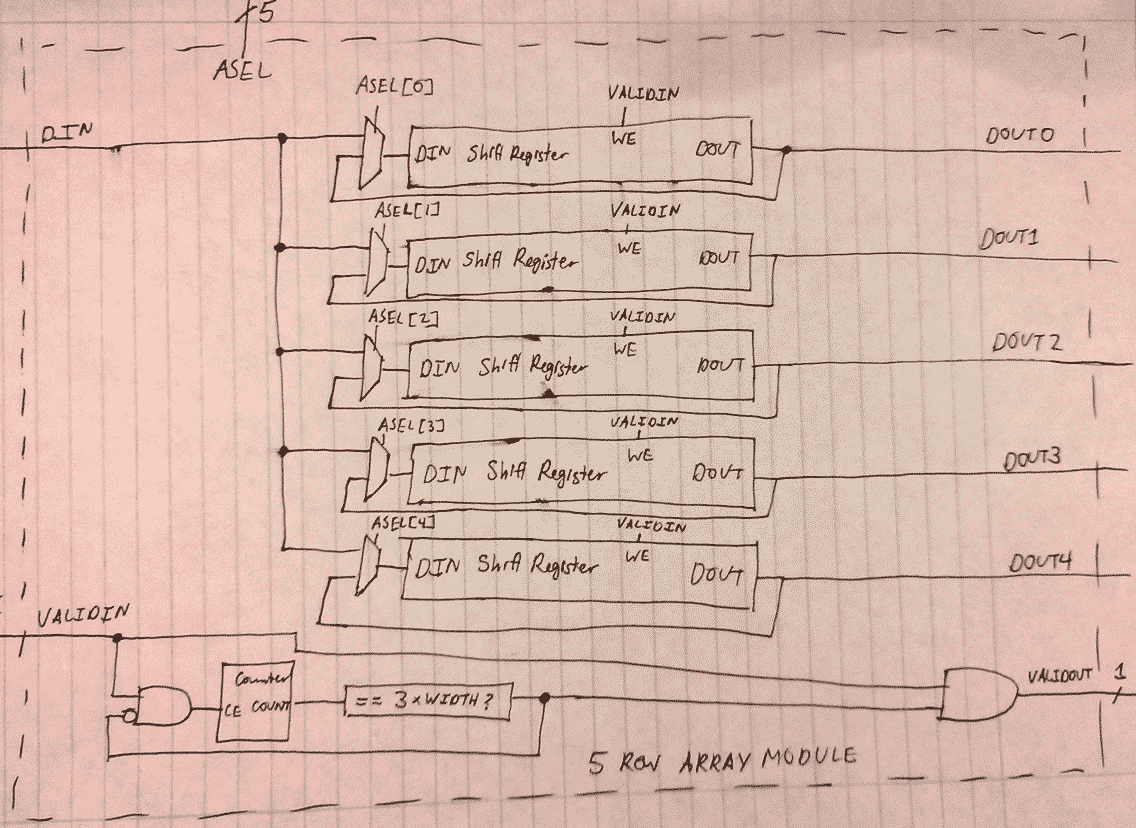 5
ASEL
ASEL[0]
VALIDIN
DIN
DIN Shift Register WE DOUT
DOUT0
ASEL[1]
VALIDIN
DIN Shift Register WE DOUT
DOUT1
ASEL[2]
VALIDIN
DIN Shift Register WE DOUT
DOUT2
ASEL[3]
VALIDIN
DIN Shift Register WE DOUT
DOUT3
ASEL[4]
VALIDIN
DIN Shift Register WE DOUT
DOUT4
VALIDIN
Counter
CE COUNT
== 3xWIDTH?
VALIDOUT 1
5 ROW ARRAY MODULE